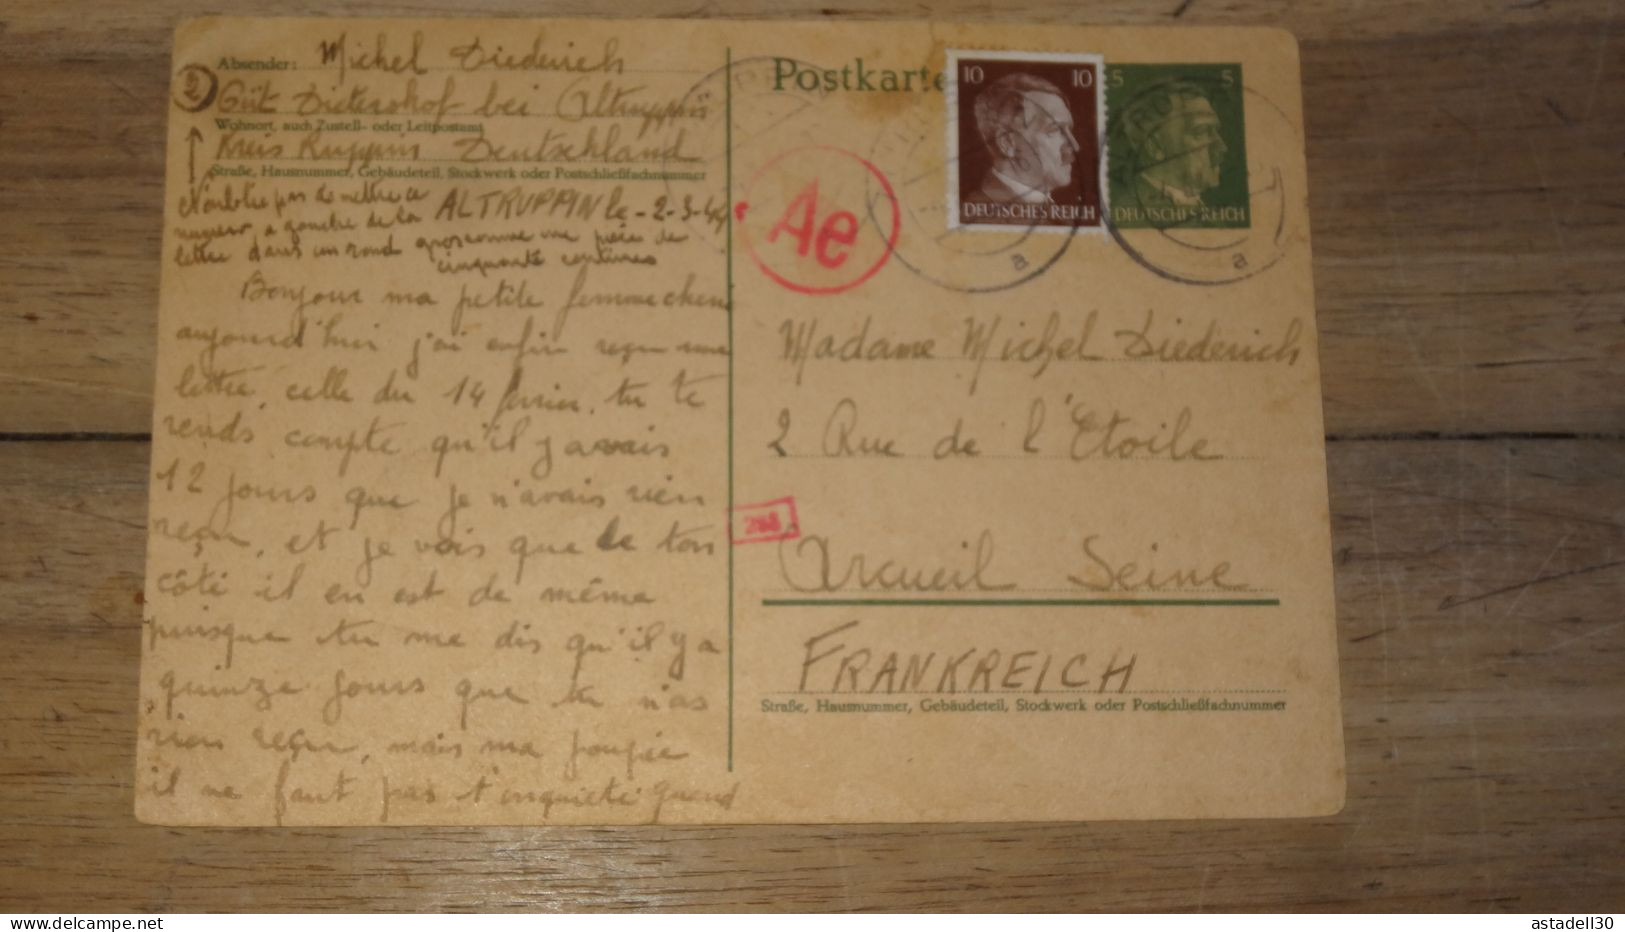 Absender: Michel Diederich
2
Gut Dietershof bei Altruppin
Wohnort, auch Zustell- oder Leitpostamt
Kreis Ruppin Deutschland
Straße, Hausnummer, Gebäudeteil, Stockwerk oder Postschließfachnummer
N'oublie pas de mettre ce
numéro, a gauche de la
lettre dans un rond gros comme une pièce de
cinquante centimes
ALTRUPPIN le - 2-3-44
Bonjour ma petite femme cherie
aujourd'hui j'ai enfin reçu une
lettre, celle du 14 février, tu te
rends compte qu'il y avais
12 jours que je n'avais rien
reçu, et je vois que de ton
côté il en est de même
puisque tu me dis qu'il y a
quinze jours que tu n'as
rien reçu, mais ma poupée
il ne faut pas t'inquiété quand
Postkarte
10 10
DEUTSCHES REICH
5 5
DEUTSCHES REICH
a
a
Ae
Madame Michel Diederich
2 Rue de l'Etoile
Arcueil Seine
FRANKREICH
Straße, Hausnummer, Gebäudeteil, Stockwerk oder Postschließfachnummer
delcampe.net
astadell30